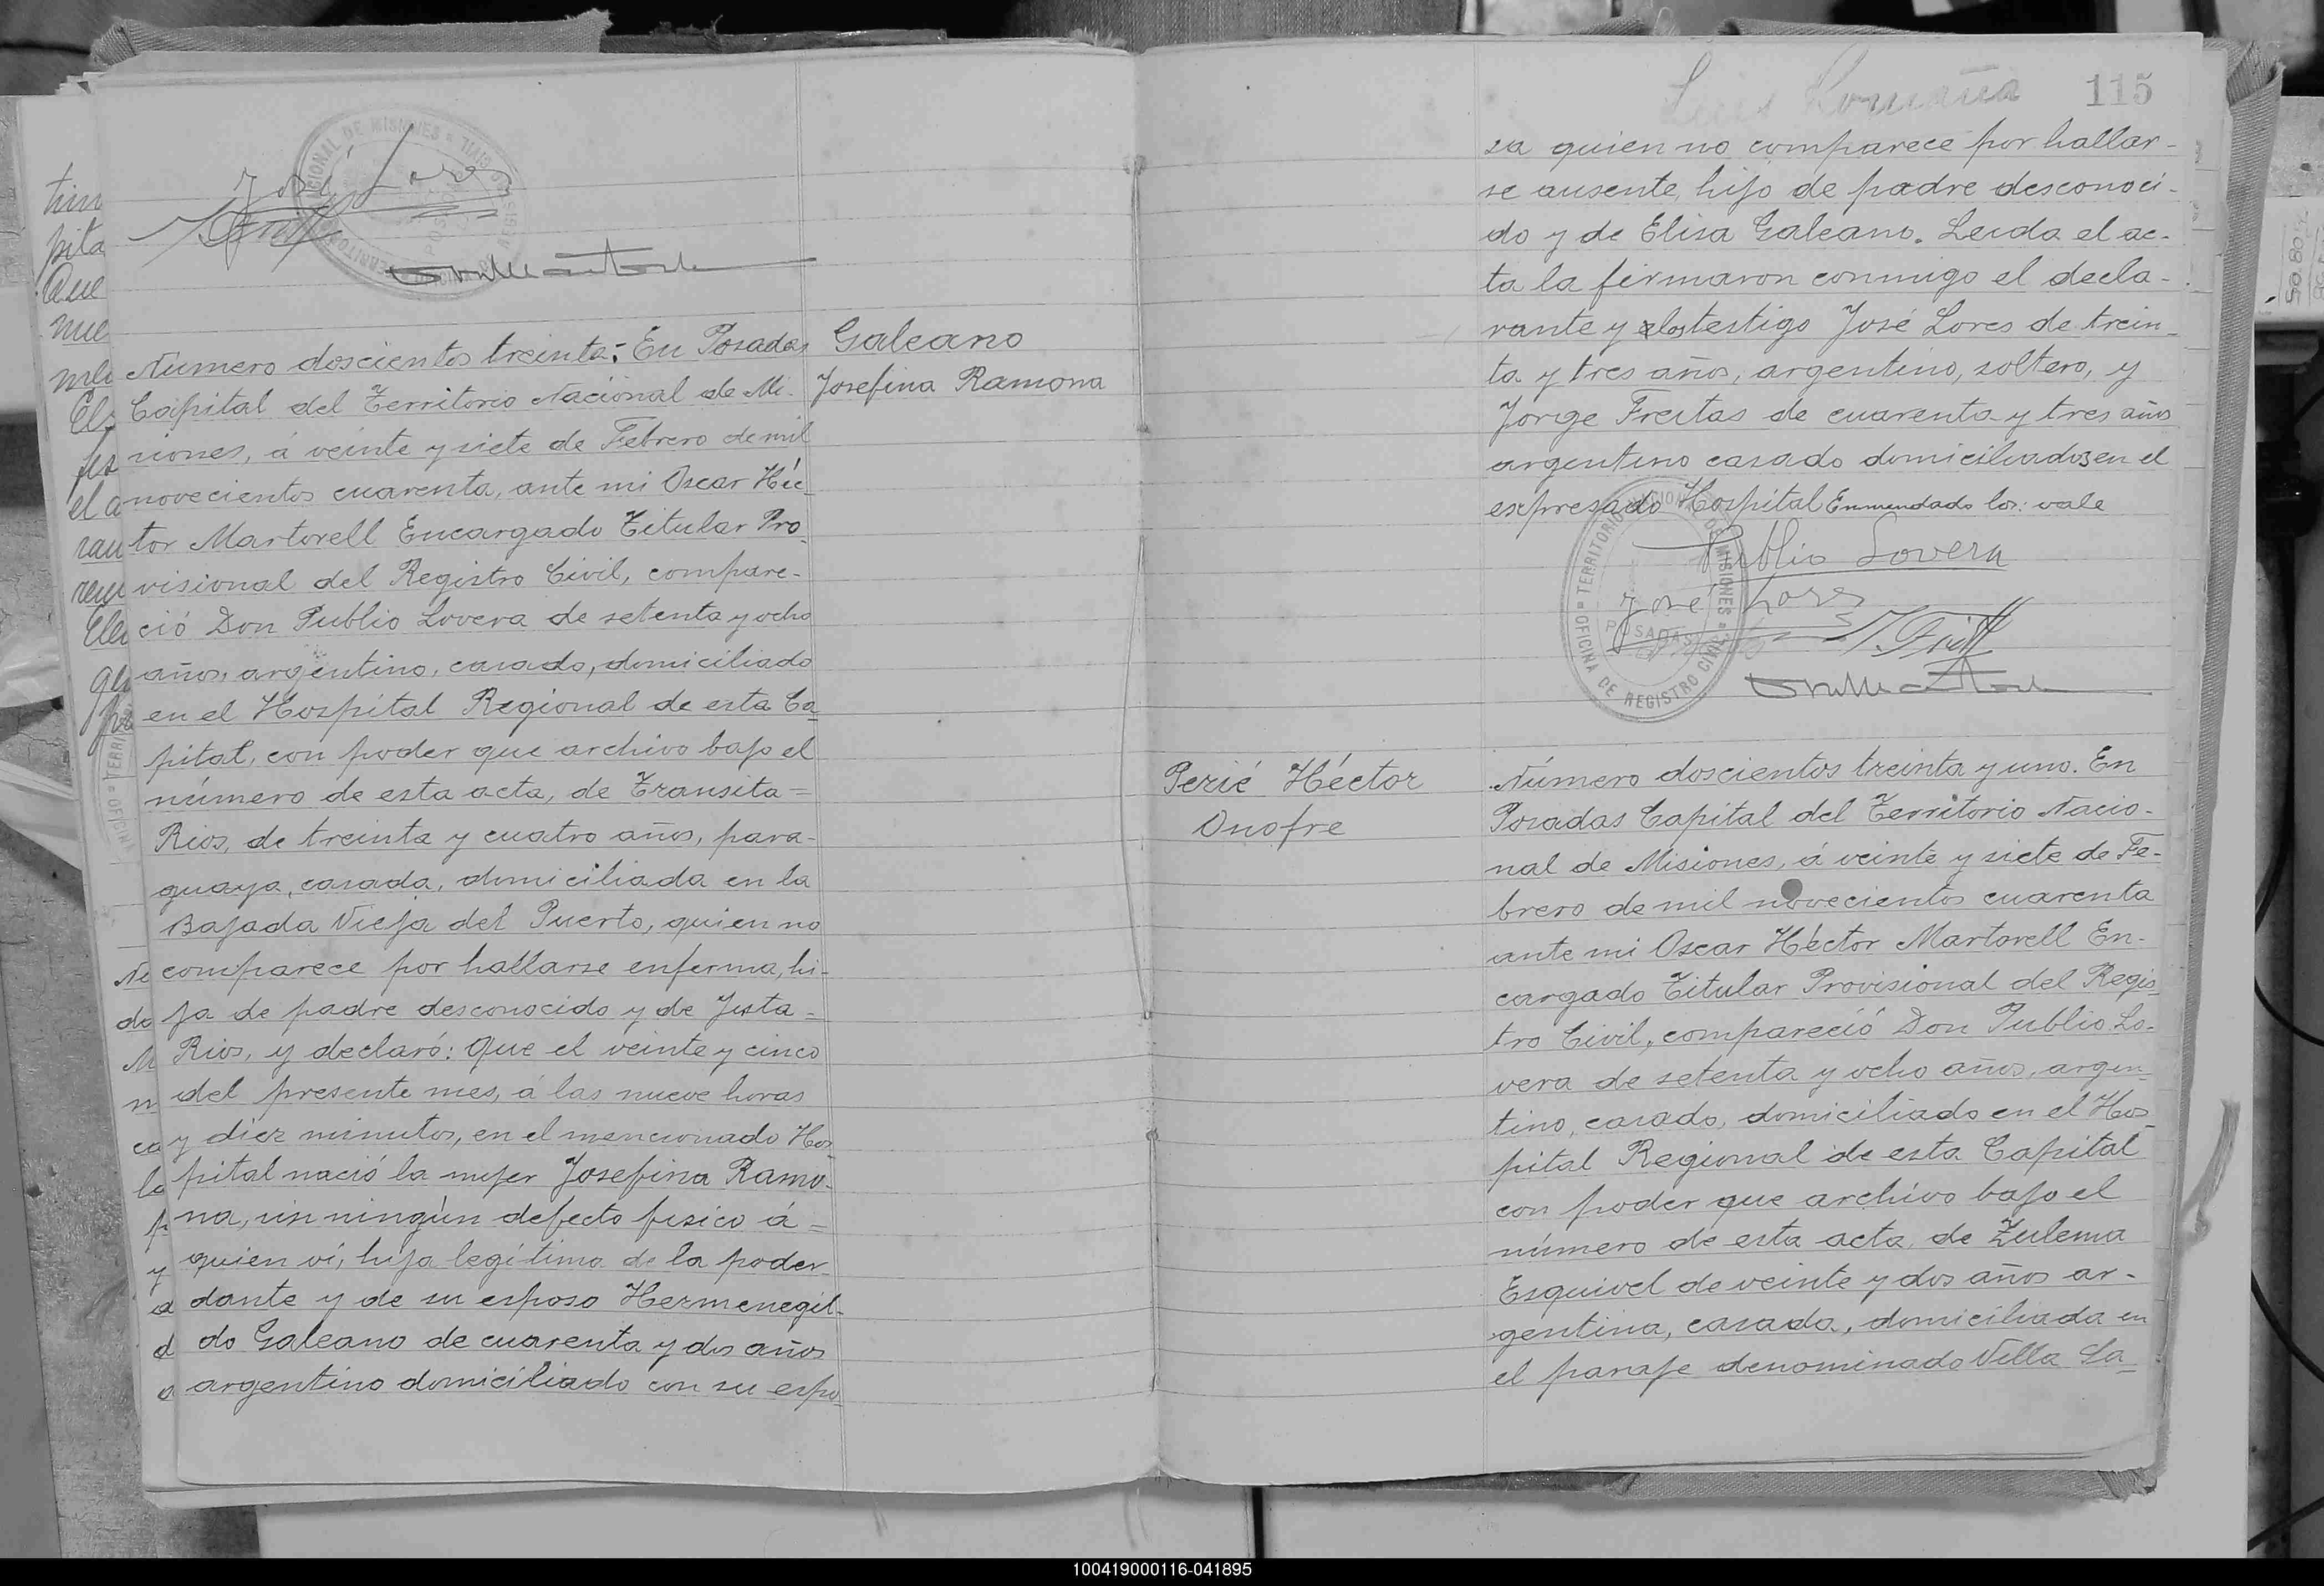 José Lores
Galeano
Josefina Ramona
Número doscientos treinta: En Posadas
Capital del Territorio Nacional de Mi-
siones, á veinte y siete de Febrero de mil
novecientos cuarenta, ante mi Oscar Héc-
tor Martorell Encargado Titular Pro-
visional del Registro Civil, compare-
ció Don Publio Lovera de setenta y ocho
años, argentino, casado, domiciliado
en el Hospital Regional de esta Ca-
pital, con poder que archivo bajo el
número de esta acta, de Transita=
Rios, de treinta y cuatro años, para-
guaya, casada, domiciliada en la
Bajada Vieja del Puerto, quien no
comparece por hallarse enferma, hi-
ja de padre desconocido y de Justa=
Rios, y declaró: Que el veinte y cinco
del presente mes, á las nueve horas
y diez minutos, en el mencionado Hos-
pital nació la mujer Josefina Ramo-
na, sin ningún defecto fisico á=
quien ví, hija legítima de la poder-
dante y de su esposo Hermenegil-
do Galeano de cuarenta y dos años
argentino domiciliado con su espo-
115
sa quien no comparece por hallar-
se ausente, hijo de padre desconoci-
do y de Elisa Galeano. Leida el ac-
ta la firmaron conmigo el decla-
rante y los testigo José Lores de trein-
ta y tres años, argentino, soltero, y
Jorge Freitas de cuarenta y tres años
argentino casado domiciliados en el
expresado Hospital Enmendado los: vale
Publio Lovera
José Lores
J. Freitas
OFICINA DE REGISTRO CIVIL TERRITORIO NACIONAL DE MISIONES
POSADAS
Perié Héctor
Onofre
Número doscientos treinta y uno. En
Posadas Capital del Territorio Nacio-
nal de Misiones, á veinte y siete de Fe-
brero de mil novecientos cuarenta
ante mi Oscar Héctor Martorell En-
cargado Titular Provisional del Regis-
tro Civil, compareció Don Publio Lo-
vera de setenta y ocho años, argen-
tino, casado, domiciliado en el Hos-
pital Regional de esta Capital
con poder que archivo bajo el
número de esta acta, de Zulema
Esquivel de veinte y dos años ar-
gentina, casada, domiciliada en
el paraje denominado Villa Sa-
100419000116-041895